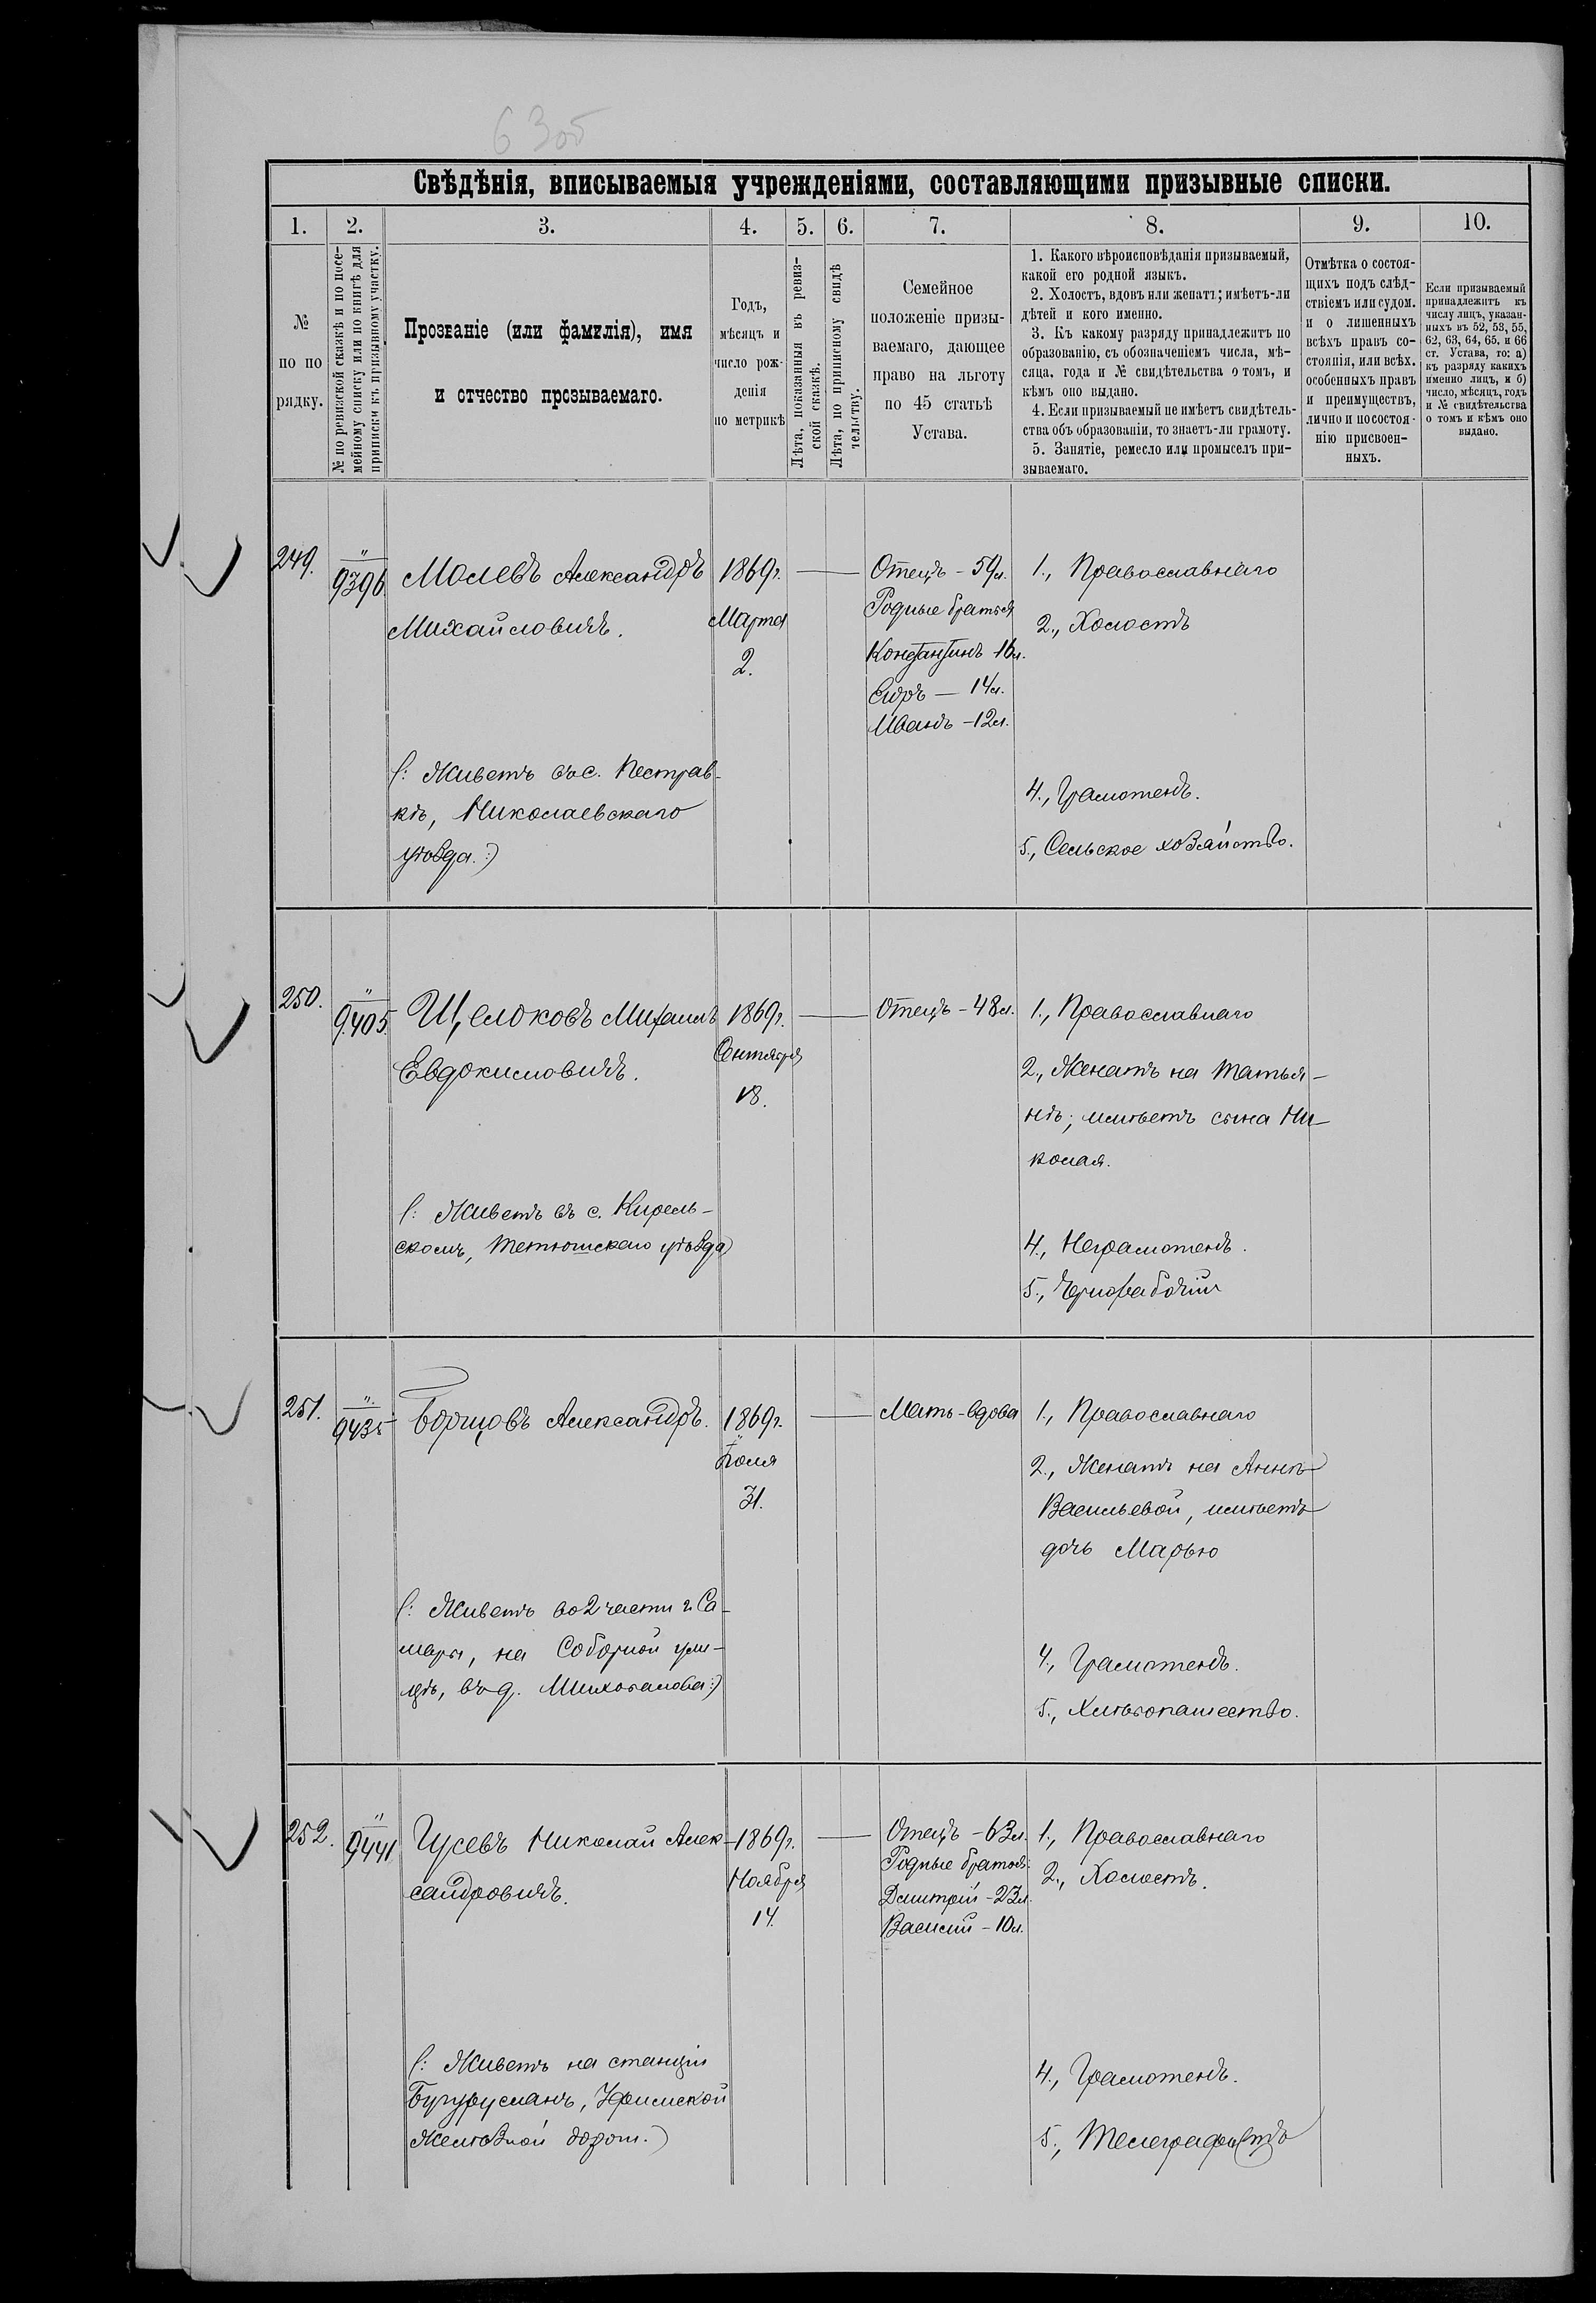 63об
Свѣдѣнія, вписываемыя учрежденіями, составляющими призывные списки.
1. 2. 3. 4. 5. 6. 7. 8. 9. 10.
№
по по
рядку.
№ по ревизской сказкѣ и по посе-
мейному списку или по книгѣ для
приписки къ призывному участку.
Прозваніе (или фамилія), имя
и отчество прсзываемаго.
Годъ,
мѣсяцъ и
число рож-
денія
по метрикѣ
Лѣта, показанныя въ ревиз-
ской сказкѣ.
Лѣта, по приписному свидѣ
тельству.
Семейное
положеніе призы-
ваемаго, дающее
право на льготу
по 45 статьѣ
Устава.
1. Какого вѣроисповѣданія призываемый,
какой его родной языкъ.
2. Холостъ, вдовъ или женатъ; имѣетъ-ли
дѣтей и кого именно.
3. Къ какому разряду принадлежитъ по
образованію, съ обозначеніемъ числа, мѣ-
сяца, года и № свидѣтельства о томъ, и
кѣмъ оно выдано.
4. Если призываемый не имѣетъ свидѣтель-
ства объ образованіи, то знаетъ-ли грамоту.
5. Занятіе, ремесло или промыселъ при-
зываемаго.
Отмѣтка о состоя-
щихъ подъ слѣд-
ствіемъ или судом.
и о лишенныхъ
всѣхъ правъ со-
стоянія, или всѣх.
особенныхъ правъ
и преимуществъ,
лично и по состоя-
нію присвоен-
ныхъ.
Если призываемый
принадлежитъ къ
числу лицъ, указан-
ныхъ въ 52, 53, 55,
62, 63, 64, 65, и 66
ст. Устава, то: а)
къ разряду какихъ
именно лицъ, и б)
число, мѣсяцъ, годъ
и № свидѣтельства
о томъ и кѣмъ оно
выдано.
249. " 9396 Молевъ Александръ
Михайловичъ.
(: Живетъ въ с. Пестрав-
кѣ, Николаевскаго
уѣзда. :)
1869г.
Марта
2.
Отецъ - 59л.
Родные братья
Константинъ 16л.
Сидръ — 14л.
Иванъ - 12л.
1., Православнаго
2., Холостъ
4., Грамотенъ.
5., Сельское хозяйство.
250. " 9405 Щелоковъ Михаилъ
Евдокимовичъ.
(: Живетъ въ с. Кирель-
скомъ, Тетюшскаго уѣзда)
1869г.
Сентября
18.
Отецъ - 48л.
1., Православнаго
2., Женатъ на Татья-
нѣ; имѣетъ сына Ни-
колая.
4., Неграмотенъ.
5., Чернорабочій
251. " 9435 Борщовъ Александръ.
(: Живетъ во 2 части г. Са-
мары, на Соборной ули-
цѣ, въ д.
1869г.
Іюля
31.
Мать - вдова
1., Православнаго
2., Женатъ на Аннѣ
Васильевой, имѣетъ
дочь Марью
4., Грамотенъ.
5., Хлѣбопашество.
252. " 9441 Гусевъ Николай Алек-
сандровичъ.
(: Живетъ на станціи
Бугурусланъ, Уфимской
Желѣзной дорог.)
1869г.
Ноября
14.
Отецъ - 63л.
Родные братья:
Дмитрій - 23л.
Василій - 10л.
1., Православнаго
2., Холостъ.
4., Грамотенъ.
5., Телеграфистъ